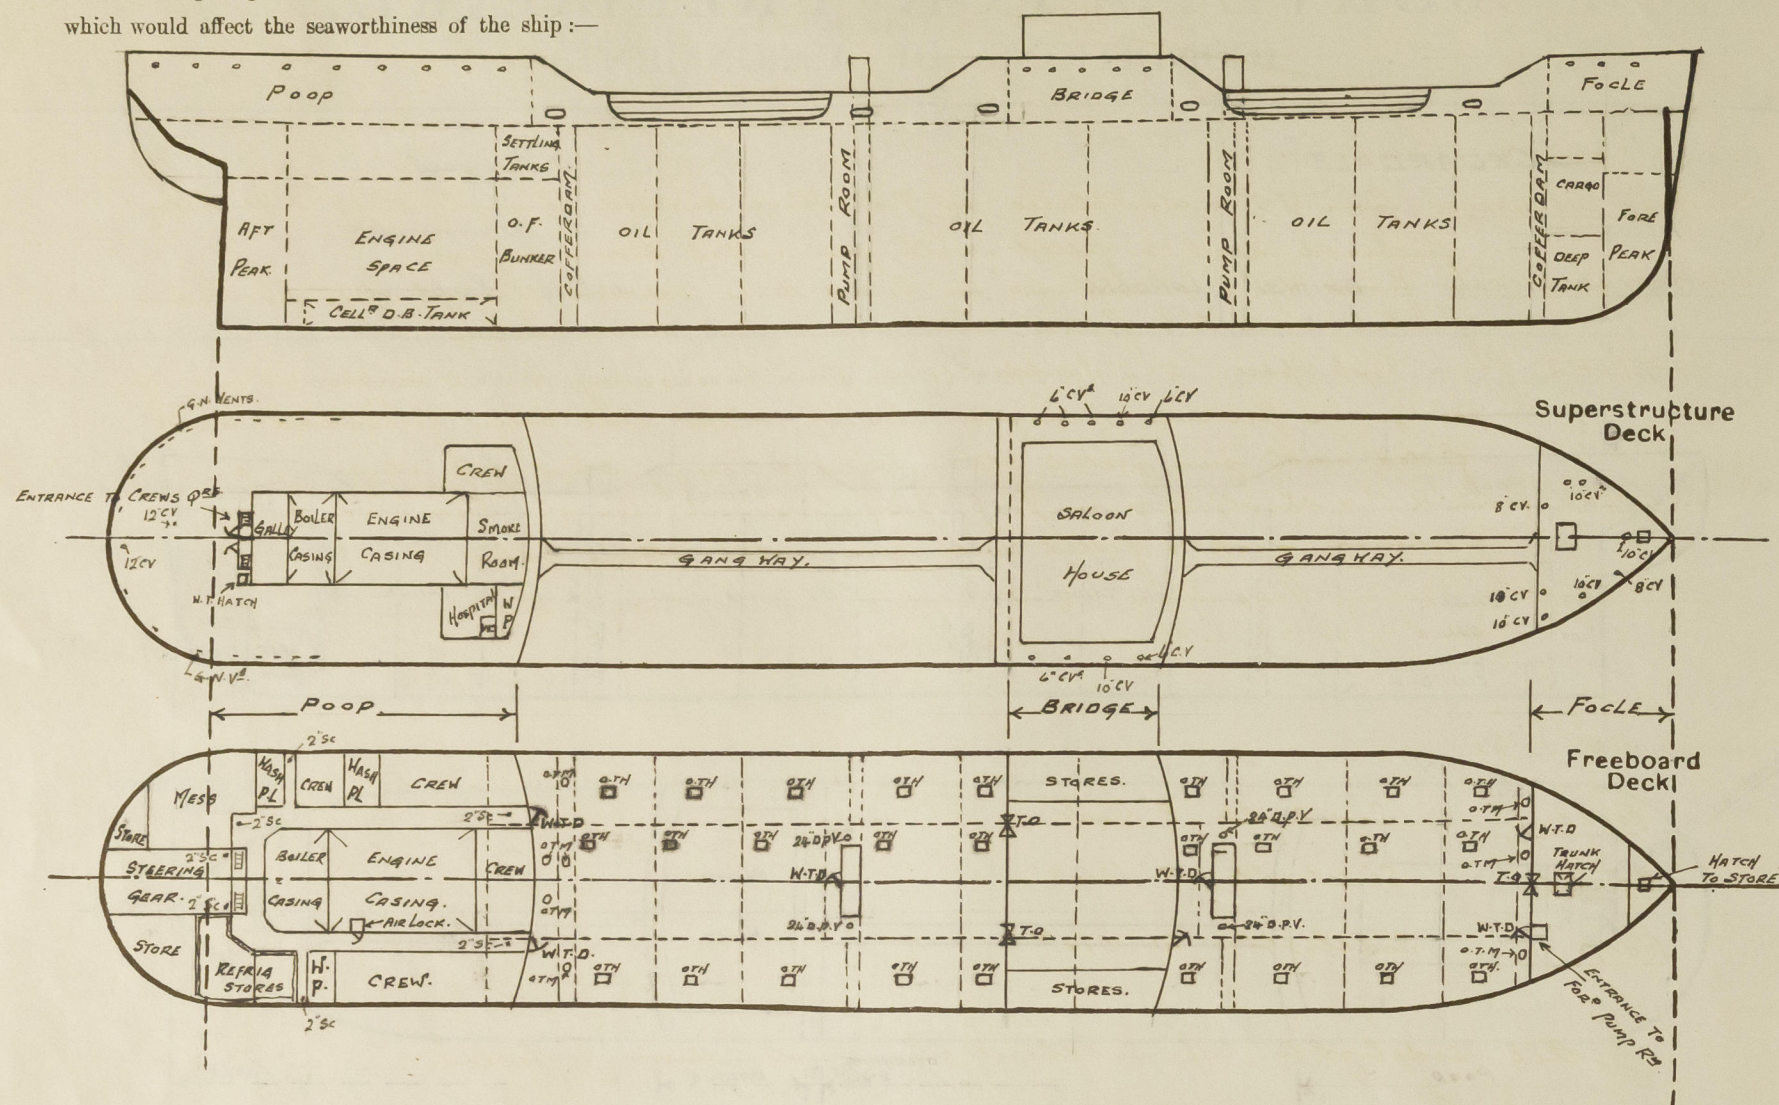 which would affect the seaworthiness of the ship :—
POOP
BRIDGE
FOCLE
SETTLING
TANKS
AFT
PEAK.
ENGINE
SPACE
O.F.
BUNKER
COFFERDAM.
OIL TANKS
PUMP ROOM
OIL TANKS.
PUMP ROOM
OIL TANKS
COFFERDAM
CARGO
DEEP
TANK
FORE
PEAK
CELLR D.B. TANK
G.N. VENTS.
6"CVS 10"CV 6"CV
Superstructure
Deck
ENTRANCE TO CREWS QRS
12"CV
12"CV
W.T. HATCH
GALLEY
BOILER
CASING
ENGINE
CASING
CREW
SMOKE
ROOM.
HOSPITAL
WC
W
P
GANGWAY.
SALOON
HOUSE
GANGWAY.
8"CV.
10"CVS
10"CV
10"CV
8"CV
10"CV
10"CV
G.N.VS.
6"CVS
10"CV
6"C.V
POOP
BRIDGE
FOCLE
Freeboard
Deck
2"SC
MESS
WASH
PL
CREW
WASH
PL
CREW
STORE
2"SC
2"SC
W.T.D
STEERING
GEAR.
2"SC
2"SC
BOILER
CASING
ENGINE
CASING.
AIR LOCK.
CREW
STORE
REFRIG
STORES
W.
P.
CREW.
2"SC
2"SC
W.T.D.
O.T.M
OTM
OTM
OTM
O.TH OTH OTH OTH OTH
OTH OTH OTH OTH
24"D.P.V.
W.T.D
24"D.P.V
OTH OTH OTH OTH OTH
STORES.
T.O
T.O
STORES.
OTH OTH OTH OTH
24"D.P.V
OTH OTH OTH OTH
W.T.D
24"D.P.V.
OTH OTH OTH OTH.
O.T.M
W.T.D
O.T.M
T.O
TRUNK
HATCH
HATCH
TO STORE
W.T.D
O.T.M
ENTRANCE TO
FORD PUMP RM.